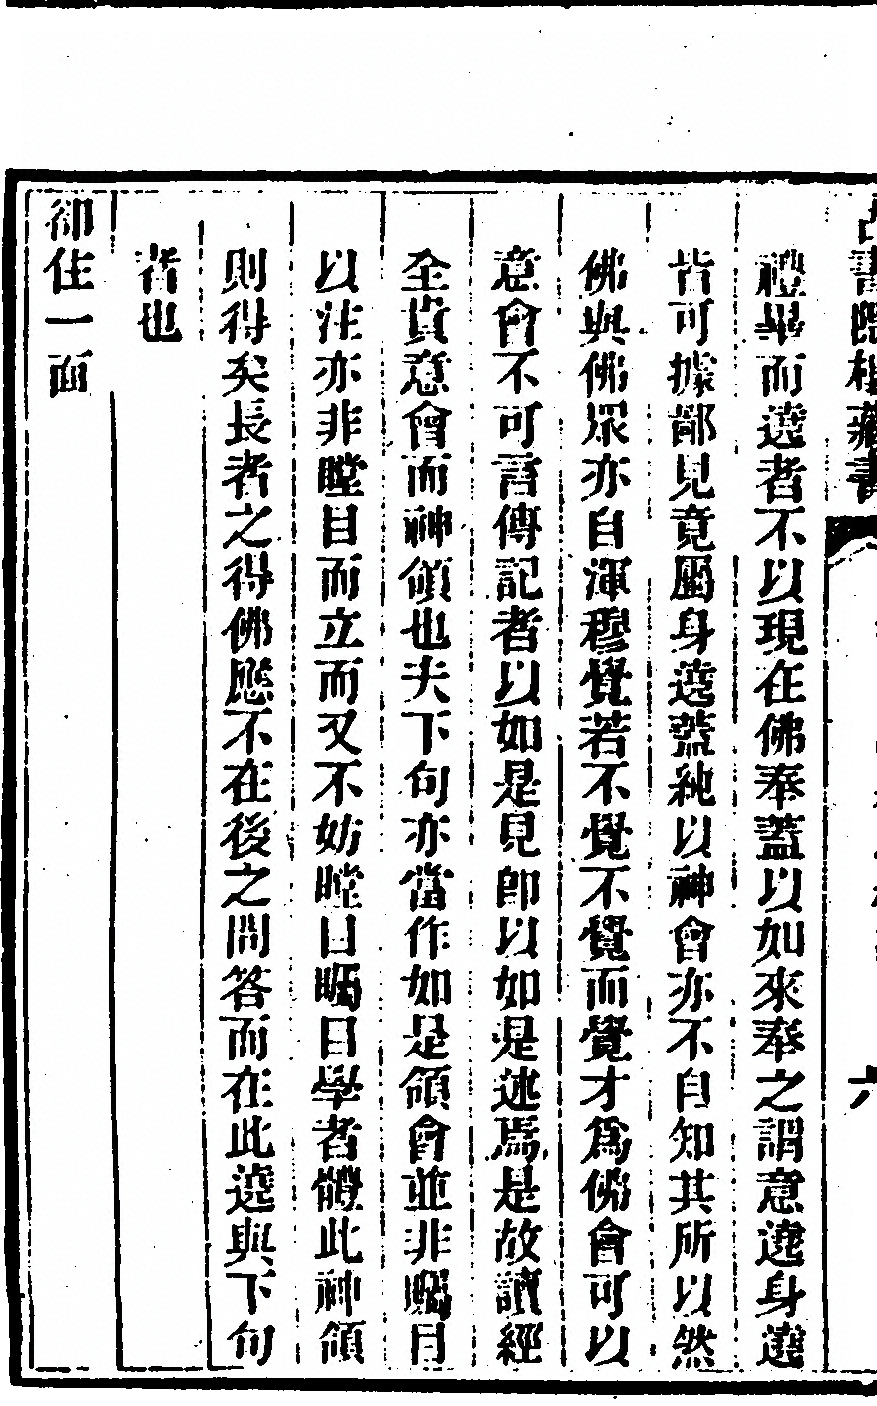 禮畢而遶者不以現在佛奉蓋以如來奉之謂意遶身遶
皆可據鄙見竟屬身遶蓋純以神會亦不自知其所以然
佛與佛眾亦自渾穆覺若不覺不覺而覺才為佛會可以
意會不可言傳記者以如是見即以如是述焉是故讀經
全貴意會而神領也夫下句亦當作如是領會並非矚目
以注亦非瞠目而立而又不妨瞠目矚目學者體此神領
則得矣長者之得佛應不在後之問答而在此遶與下句
者也
卻住一面